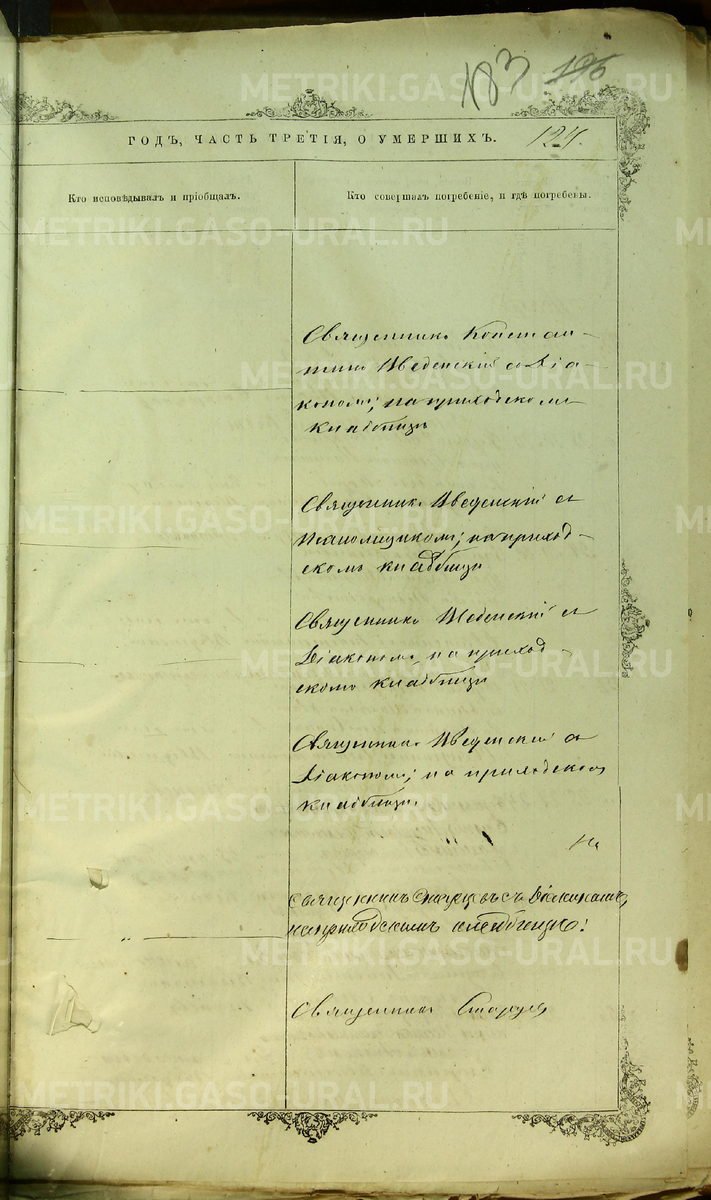 183 196
ГОДЪ, ЧАСТЬ ТРЕТІЯ, О УМЕРШИХЪ.
Кто исповѣдывалъ и пріобщалъ.
Кто совершалъ погребеніе, и гдѣ погребены.
Священникъ Констан-
тинъ Введенскій съ Діа-
кономъ; на приходскомъ
кладбищѣ
Священникъ Введенскій съ
Псаломщикомъ; на приход-
скомъ кладбищѣ
Священникъ Введенскій съ
Діакономъ, на приход-
скомъ кладбищѣ
Священникъ Введенскій съ
Діакономъ; на приходскомъ
кладбищѣ.
Священникъ съ Діакономъ,
на приходскомъ кладбищѣ.
Священникъ
METRIKI.GASO-URAL.RU